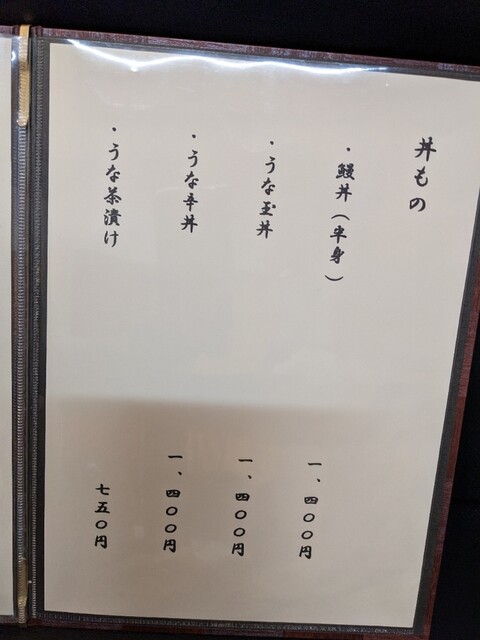 丼もの
・鰻丼（半身）
一、四〇〇円
・うな玉丼
一、四〇〇円
・うな辛丼
一、四〇〇円
・うな茶漬け
七五〇円